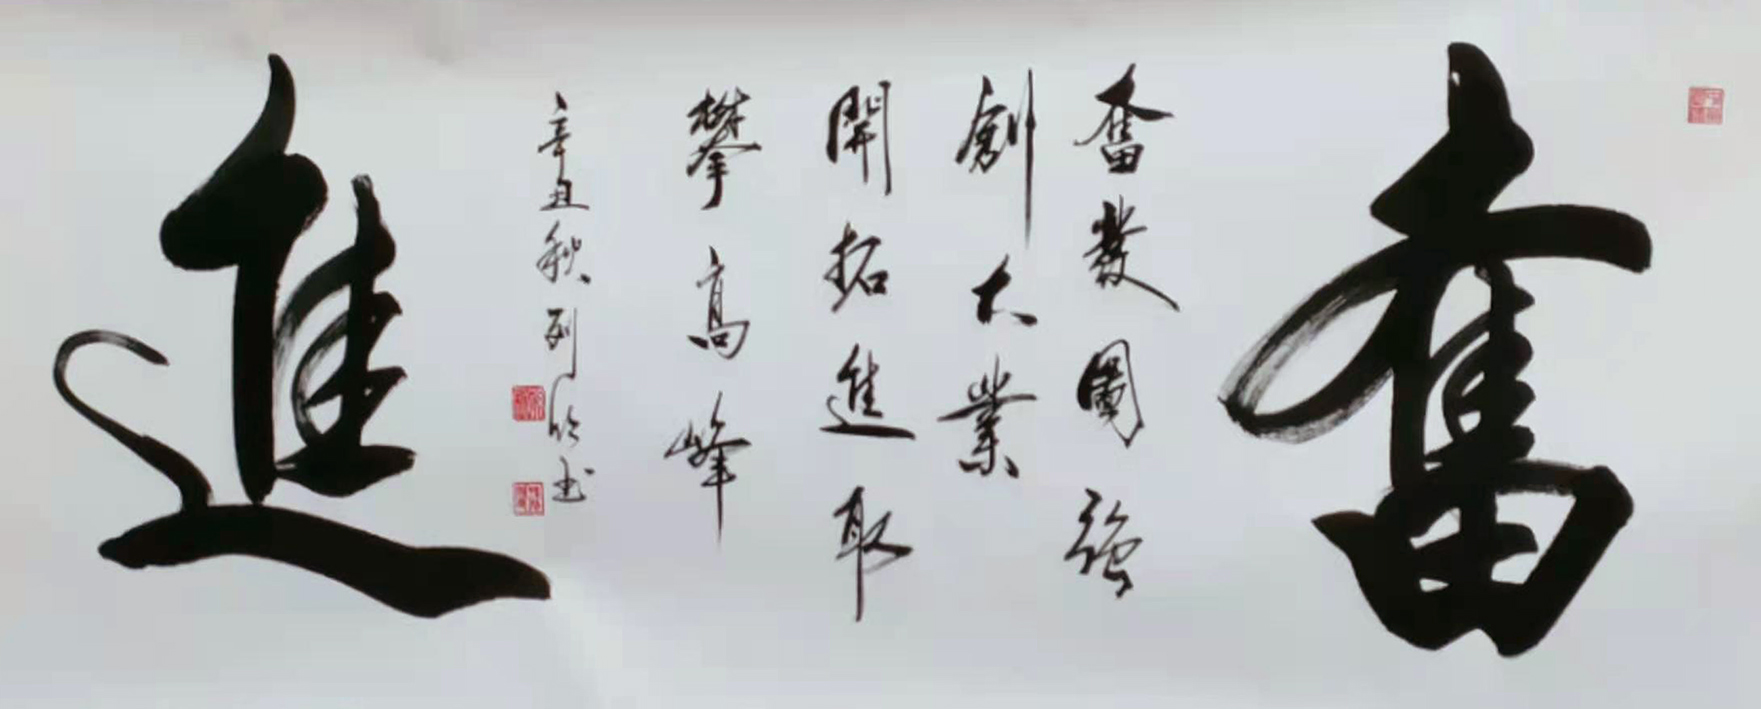 奮
奮發圖強
創大業
開拓進取
攀高峰
進
辛丑秋列欣书